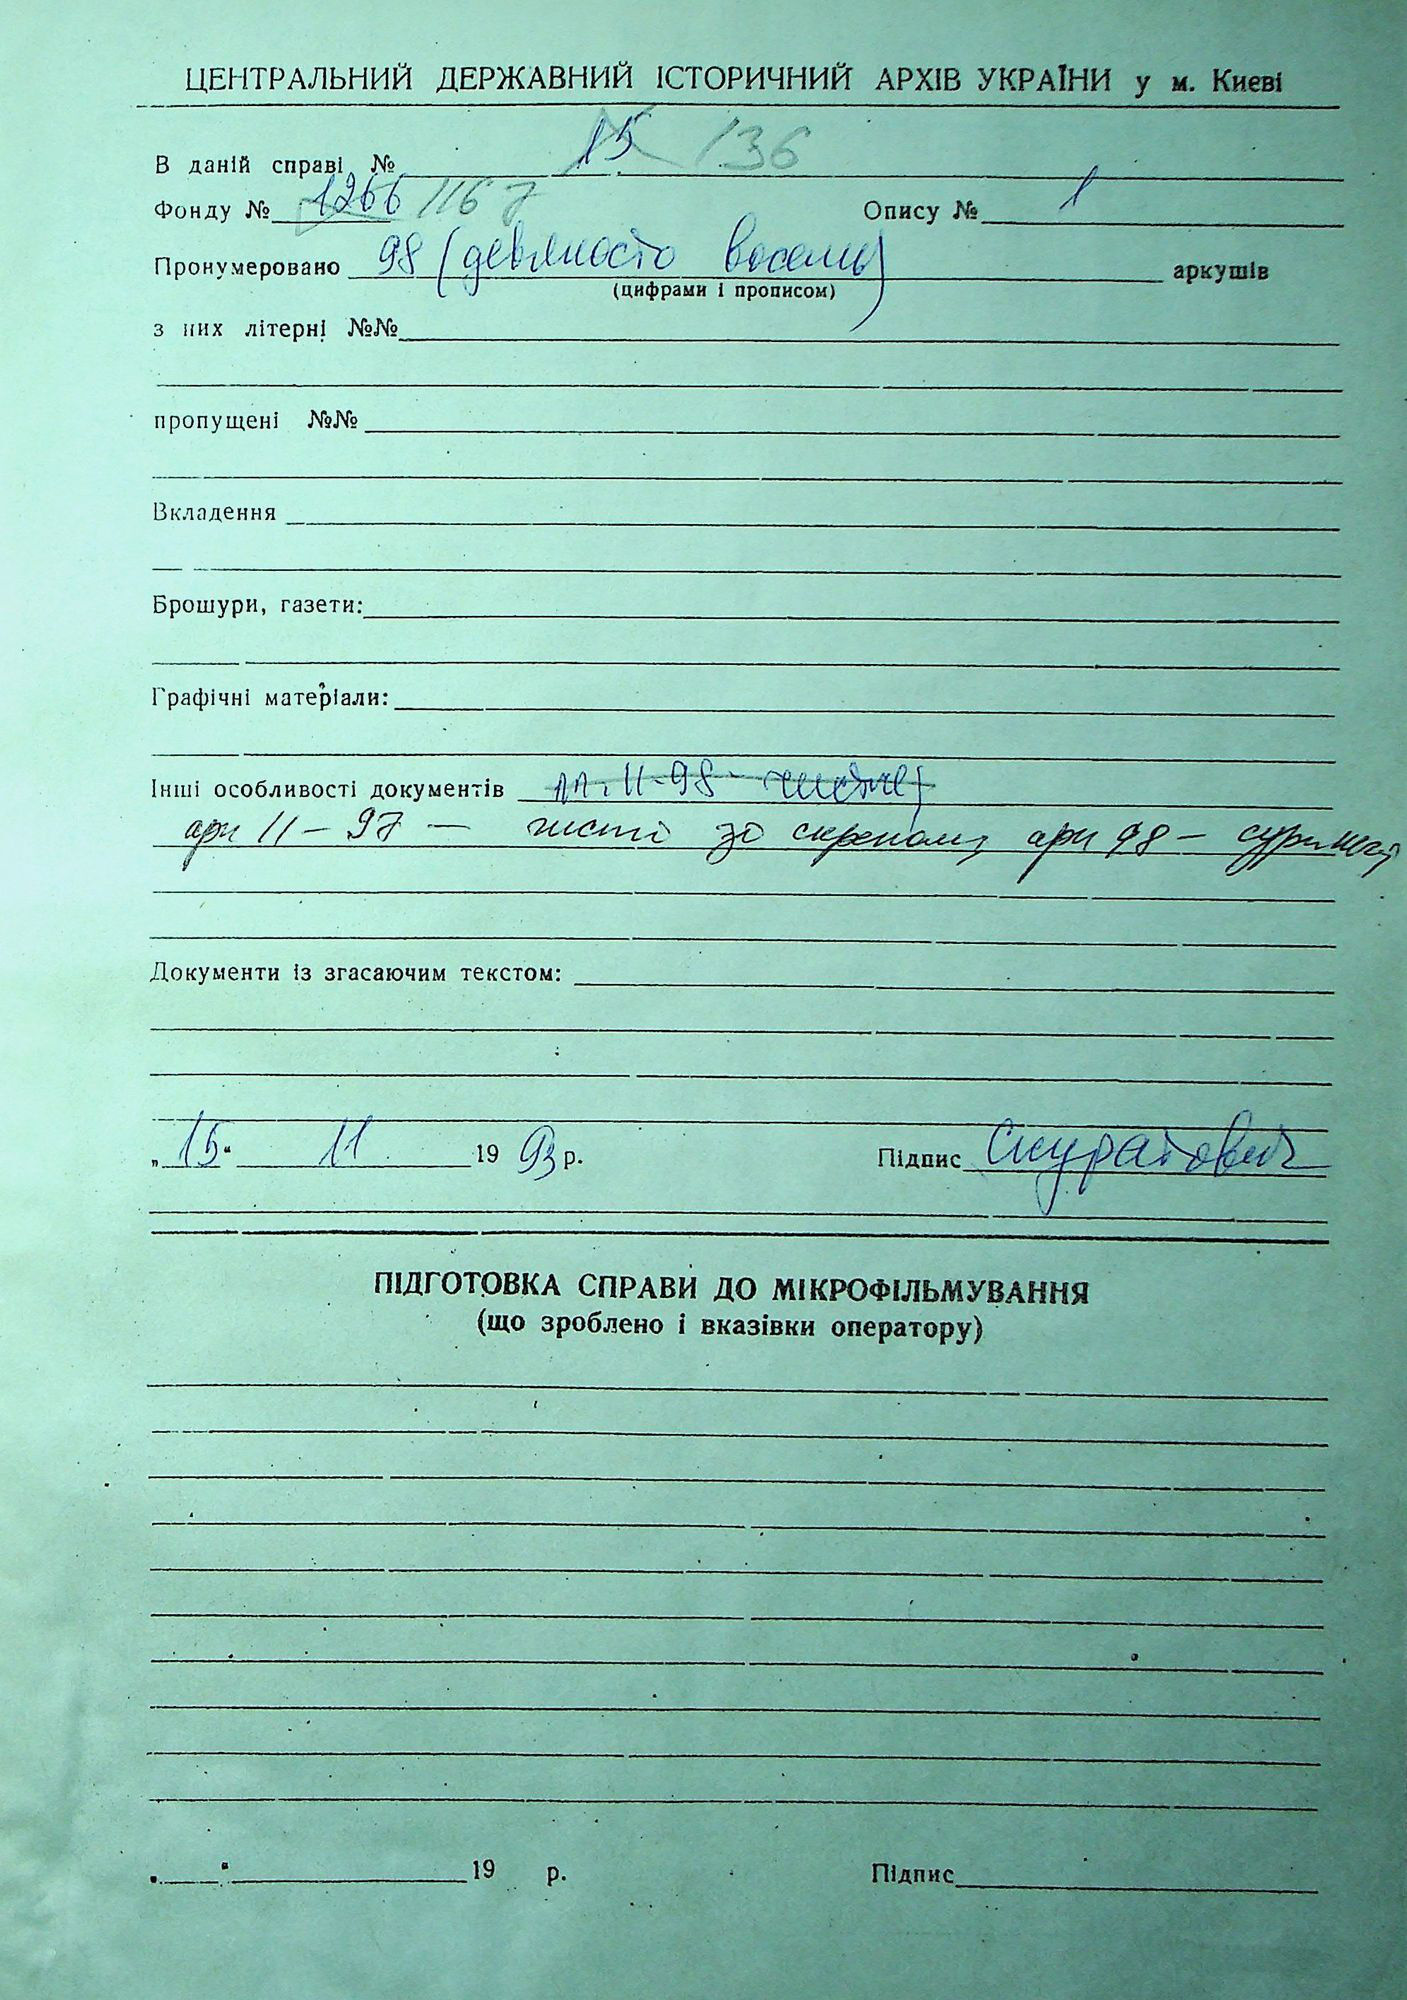 ЦЕНТРАЛЬНИЙ ДЕРЖАВНИЙ ІСТОРИЧНИЙ АРХІВ УКРАЇНИ у м. Києві
В даній справі № 15 /136
Фонду № 1266 /167 Опису № 1
Пронумеровано 98 (девяносто восемь) аркушів
(цифрами і прописом)
з них літерні №№
пропущені №№
Вкладення
Брошури, газети:
Графічні матеріали:
Інші особливості документів 11-98
арк 11 – 97 – чисті зі скрепами, арк 98 –
Документи із згасаючим текстом:
„15“ 11 1993 р. Підпис Скуратович
ПІДГОТОВКА СПРАВИ ДО МІКРОФІЛЬМУВАННЯ
(що зроблено і вказівки оператору)
„ “ 19 р. Підпис